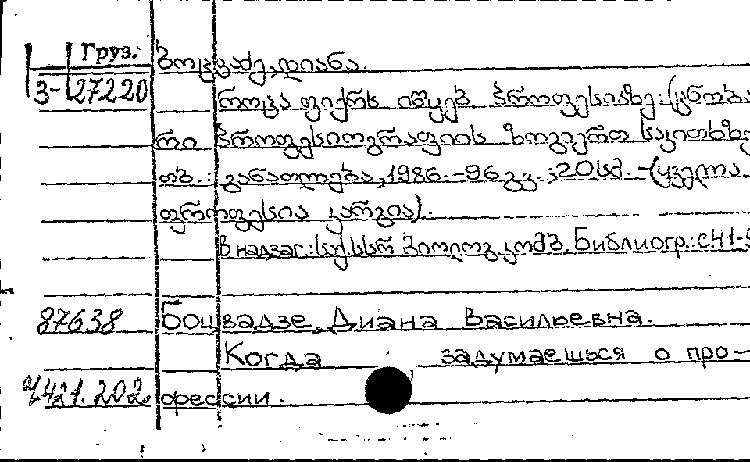 Груз. ბოცვაძე, დიანა.
3-27220 როცა ფიქრს იწყებ პროფესიაზე. (ცნობა
რი პროფესიოგრაფიის ზოგიერთ საკითხზე
თბ.: განათლება, 1986. -96 გვ.; 20 სმ. -(ყველა
პროფესია კარგია).
В надзаг.: Библиогр.: с.
87638 Боцвадзе, Диана Васильевна.
Когда задумаешься о про-
4421.202 фессии.